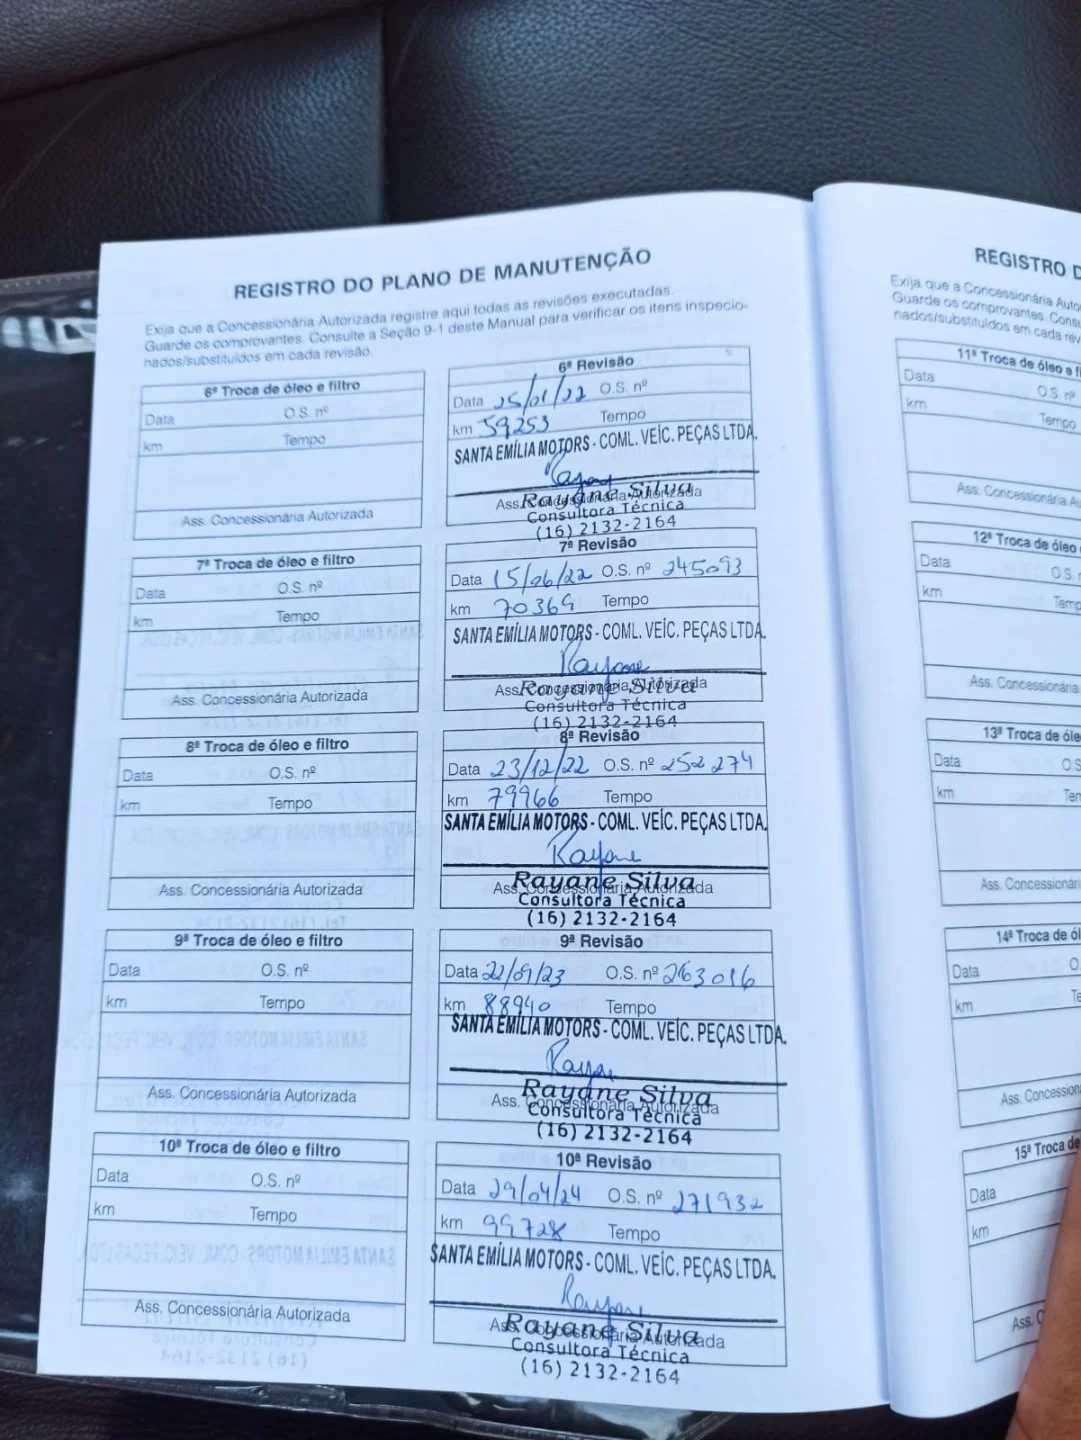 REGISTRO DO PLANO DE MANUTENÇÃO
Exija que a Concessionária Autorizada registre aqui todas as revisões executadas.
Guarde os comprovantes. Consulte a Seção 9-1 deste Manual para verificar os itens inspecio-
nados/substituídos em cada revisão.
6ª Troca de óleo e filtro
Data O.S. nº
km Tempo
Ass. Concessionária Autorizada
6ª Revisão
Data 25/01/22 O.S. nº
km 59253 Tempo
SANTA EMÍLIA MOTORS - COML. VEÍC. PEÇAS LTDA.
Ass. Concessionária Autorizada
Rayane Silva
Consultora Técnica
(16) 2132-2164
7ª Troca de óleo e filtro
Data O.S. nº
km Tempo
Ass. Concessionária Autorizada
7ª Revisão
Data 15/06/22 O.S. nº 245093
km 70369 Tempo
SANTA EMÍLIA MOTORS - COML. VEÍC. PEÇAS LTDA.
Rayane
Ass. Concessionária Autorizada
Rayane Silva
Consultora Técnica
(16) 2132-2164
8ª Troca de óleo e filtro
Data O.S. nº
km Tempo
Ass. Concessionária Autorizada
8ª Revisão
Data 23/12/22 O.S. nº 252274
km 79966 Tempo
SANTA EMÍLIA MOTORS - COML. VEÍC. PEÇAS LTDA.
Rayane
Ass. Concessionária Autorizada
Rayane Silva
Consultora Técnica
(16) 2132-2164
9ª Troca de óleo e filtro
Data O.S. nº
km Tempo
Ass. Concessionária Autorizada
9ª Revisão
Data 22/09/23 O.S. nº 263016
km 88940 Tempo
SANTA EMÍLIA MOTORS - COML. VEÍC. PEÇAS LTDA.
Ass. Concessionária Autorizada
Rayane Silva
Consultora Técnica
(16) 2132-2164
10ª Troca de óleo e filtro
Data O.S. nº
km Tempo
Ass. Concessionária Autorizada
10ª Revisão
Data 29/04/24 O.S. nº 271932
km 99728 Tempo
SANTA EMÍLIA MOTORS - COML. VEÍC. PEÇAS LTDA.
Rayane
Ass. Concessionária Autorizada
Rayane Silva
Consultora Técnica
(16) 2132-2164
REGISTRO D
Exija que a Concessionária Auto
Guarde os comprovantes. Cons
nados/substituídos em cada rev
11ª Troca de óleo e fi
Data O.S. nº
km Tempo
Ass. Concessionária Au
12ª Troca de óleo
Data O.S.
km Temp
Ass. Concessionária
13ª Troca de óle
Data O.S
km Ten
Ass. Concessionári
14ª Troca de ól
Data O.
km Te
Ass. Concession
15ª Troca de
Data
km
Ass. C